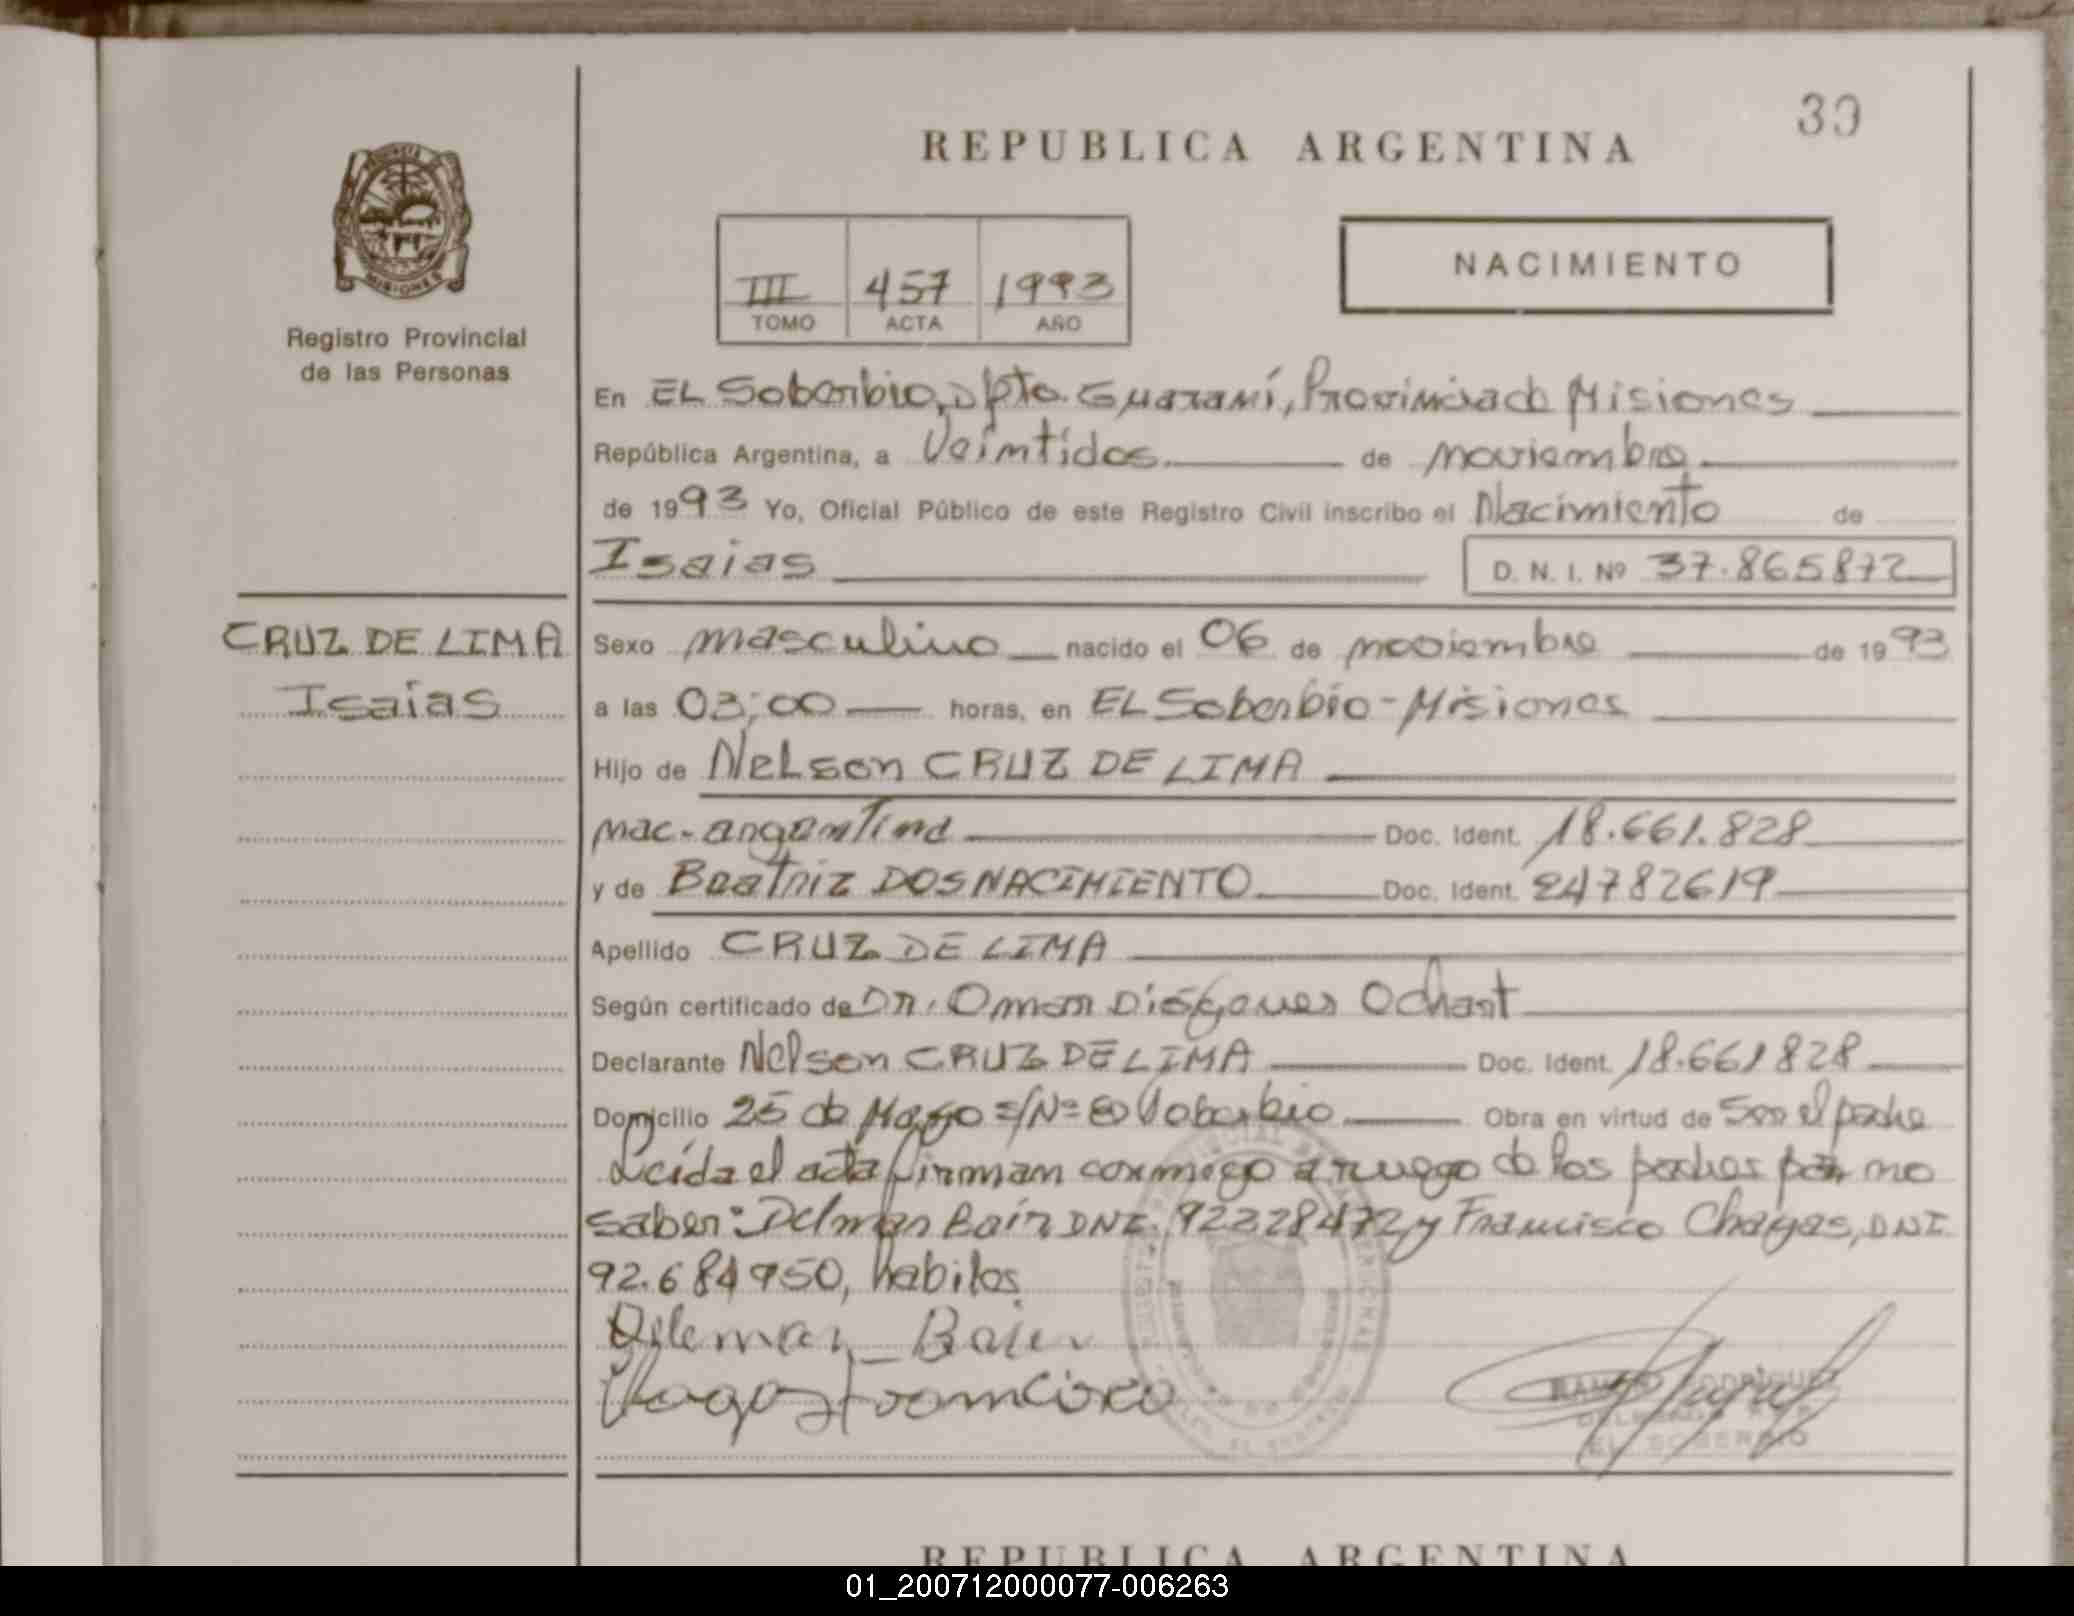 39
REPUBLICA ARGENTINA
NACIMIENTO
III 457 1993
TOMO ACTA AÑO
MISIONES
Registro Provincial
de las Personas
En EL Soberbio, Dpto. Guaraní, Provincia de Misiones
República Argentina, a Veintidos de noviembre
de 1993 Yo, Oficial Público de este Registro Civil inscribo el Nacimiento de
Isaias D. N. I. Nº 37.865872
CRUZ DE LIMA
Isaias
Sexo masculino nacido el 06 de noviembre de 1993
a las 03;00 horas, en EL Soberbio - Misiones
Hijo de Nelson CRUZ DE LIMA
nac. argentina Doc. Ident. 18.661.828
y de Beatriz DOSNACIMIENTO Doc. Ident. 24782619
Apellido CRUZ DE LIMA
Según certificado de Dr. Omar Diógenes Ochast
Declarante Nelson CRUZ DE LIMA Doc. Ident. 18.661828
Domicilio 25 de Mayo s/Nº Soberbio Obra en virtud de Ser el padre
Leída el acta firman conmigo a ruego de los padres por no
saber: Delmar Bair DNI. 92228472 y Francisco Chagas, DNI
92.684950, habiles
Delemar Baier
Chagas Francisco
RODRIGUEZ
EL SOBERBIO
REPUBLICA ARGENTINA
01_200712000077-006263